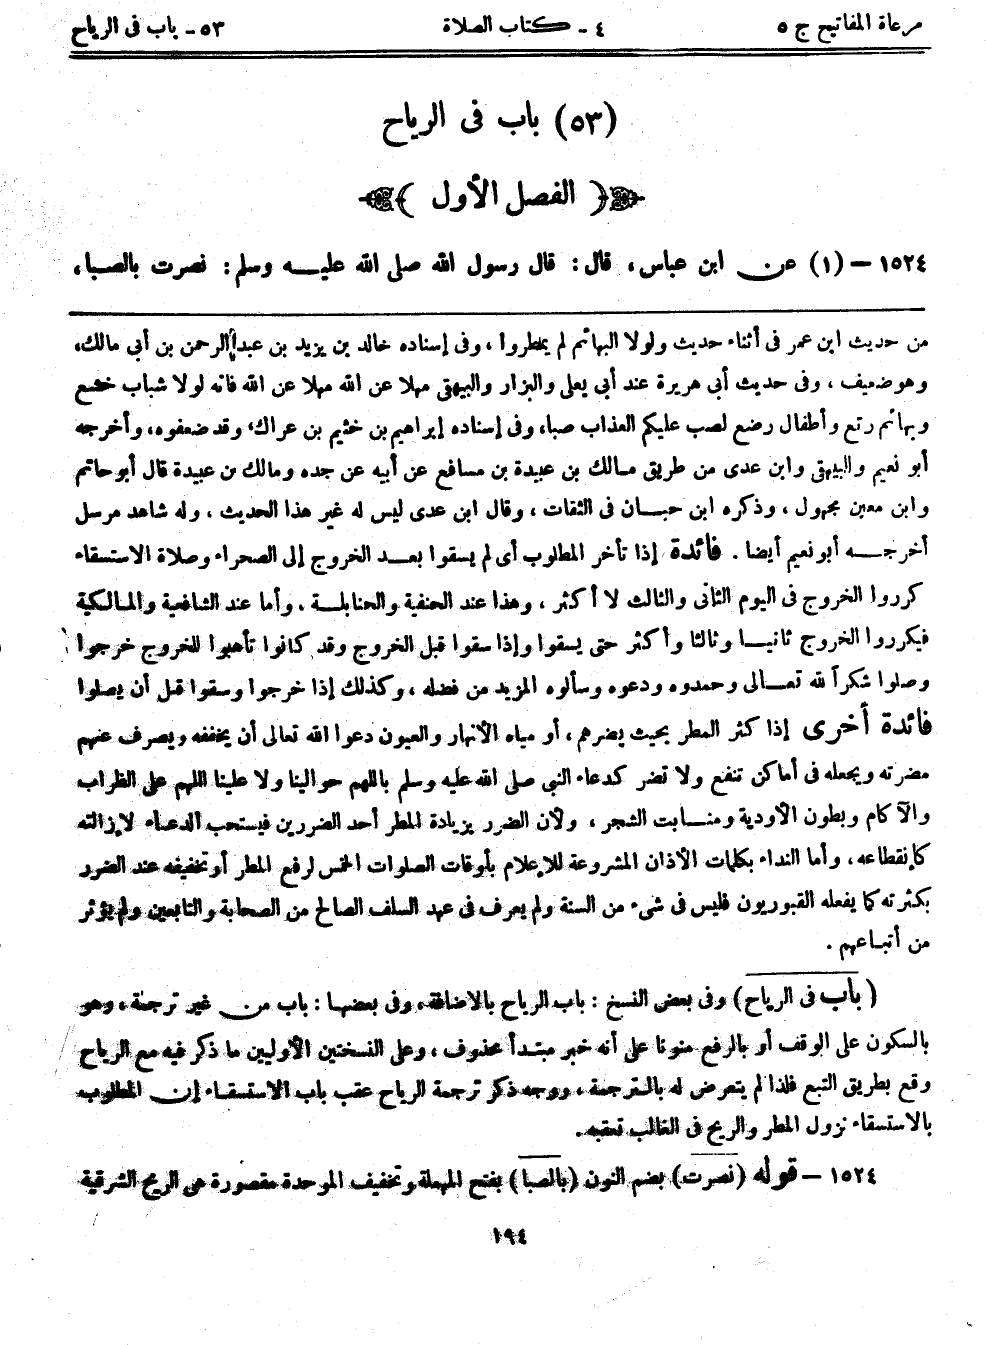 مرعاة المفاتيح ج ٥
٤ - كتاب الصلاة
٥٣ - باب فى الرياح
(٥٣) باب فى الرياح
( الفصل الأول )
١٥٢٤ - (١) عن ابن عباس، قال: قال رسول الله صلى الله عليه وسلم: نصرت بالصبا،
من حديث ابن عمر فى أثناء حديث ولولا البهائم لم يمطروا، وفى إسناده خالد بن يزيد بن عبدالرحمن بن أبي مالك،
وهو ضعيف، وفى حديث أبي هريرة عند أبي يعلى والبزار والبيهقى مهلا عن الله مهلا عن الله فانه لولا شباب خشع
وبهائم رتع وأطفال رضع لصب عليكم العذاب صبا، وفى إسناده إبراهيم بن خثيم بن عراك، وقد ضعفوه، وأخرجه
أبو نعيم والبيهقى وابن عدى من طريق مالك بن عبيدة بن مسافع عن أبيه عن جده ومالك بن عبيدة قال أبو حاتم
وابن معين مجهول، وذكره ابن حبان فى الثقات، وقال ابن عدى ليس له غير هذا الحديث، وله شاهد مرسل
أخرجه أبو نعيم أيضا. فائدة إذا تأخر المطلوب أى لم يسقوا بعد الخروج إلى الصحراء وصلاة الاستسقاء
كرروا الخروج فى اليوم الثانى والثالث لا أكثر، وهذا عند الحنفية والحنابلة. وأما عند الشافعية والمالكية
فيكرروا الخروج ثانيا وثالثا وأكثر حتى يسقوا وإذا سقوا قبل الخروج وقد كانوا تأهبوا للخروج خرجوا
وصلوا شكراً لله تعالى وحمدوه ودعوه وسألوه المزيد من فضله، وكذلك إذا خرجوا وسقوا قبل أن يصلوا
فائدة أخرى إذا كثر المطر بحيث يضرهم، أو مياه الأنهار والعيون دعوا الله تعالى أن يخففه ويصرف عنهم
مضرته ويجعله فى أماكن تنفع ولا تضر كدعاء النبي صلى الله عليه وسلم باللهم حوالينا ولا علينا اللهم على الظراب
والآكام وبطون الأودية ومنابت الشجر، ولأن الضرر بزيادة المطر أحد الضررين فيستحب الدعاء لإزالته
كإنقطاعه، وأما النداء بكلمات الأذان المشروعة للإعلام بأوقات الصلوات الخمس لرفع المطر أو تخفيفه عند الضرر
بكثرته كما يفعله القبوريون فليس فى شىء من السنة ولم يعرف فى عهد السلف الصالح من الصحابة والتابعين ولم يؤثر
من أتباعهم.
(باب فى الرياح) وفى بعض النسخ: باب الرياح بالاضافة، وفى بعضها: باب من غير ترجمة، وهو
بالسكون على الوقف أو بالرفع منونا على أنه خبر مبتدأ محذوف، وعلى النسختين الأوليين ما ذكر فيه مع الرياح
وقع بطريق التبع فلذا لم يتعرض له بالترجمة، ووجه ذكر ترجمة الرياح عقب باب الاستسقاء إن المطلوب
بالاستسقاء نزول المطر والريح فى الغالب تعقبه.
١٥٢٤ - قوله (نصرت) بضم النون (بالصبا) بفتح المهملة وتخفيف الموحدة مقصورة هى الريح الشرقية
١٩٤